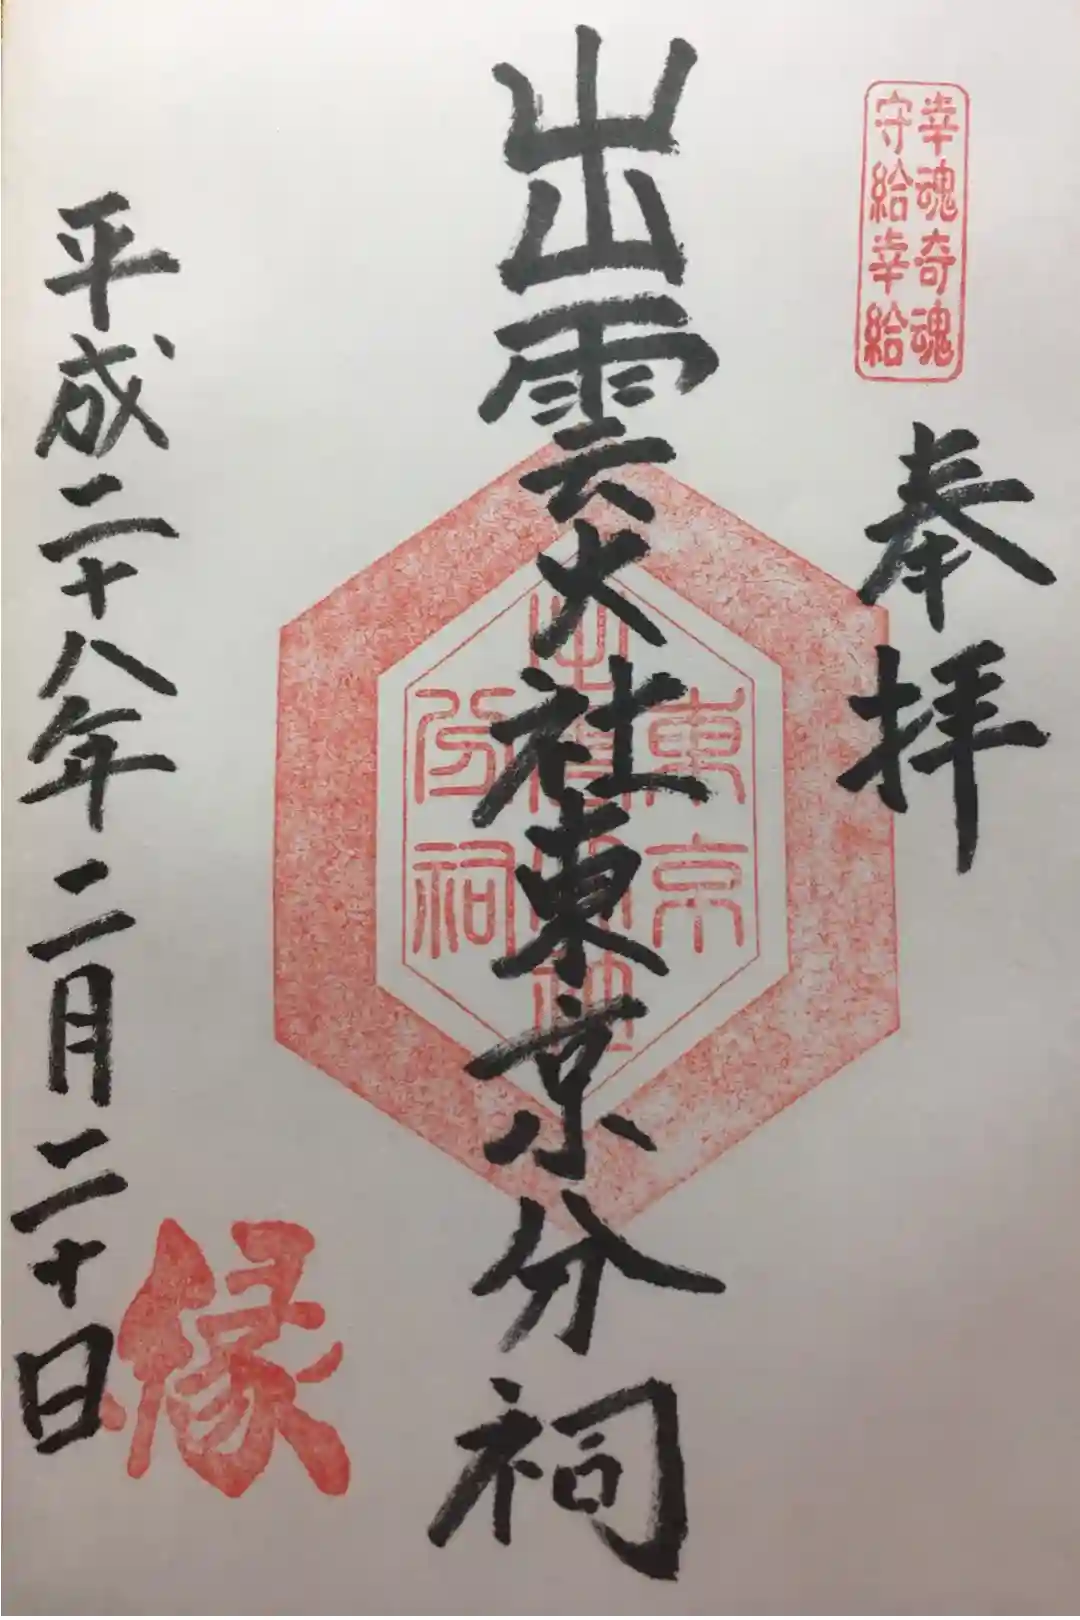 幸魂奇魂
守給幸給
奉拝
出雲大社東京分祠
東京
出雲大社
分祠
平成二十八年二月二十日
縁